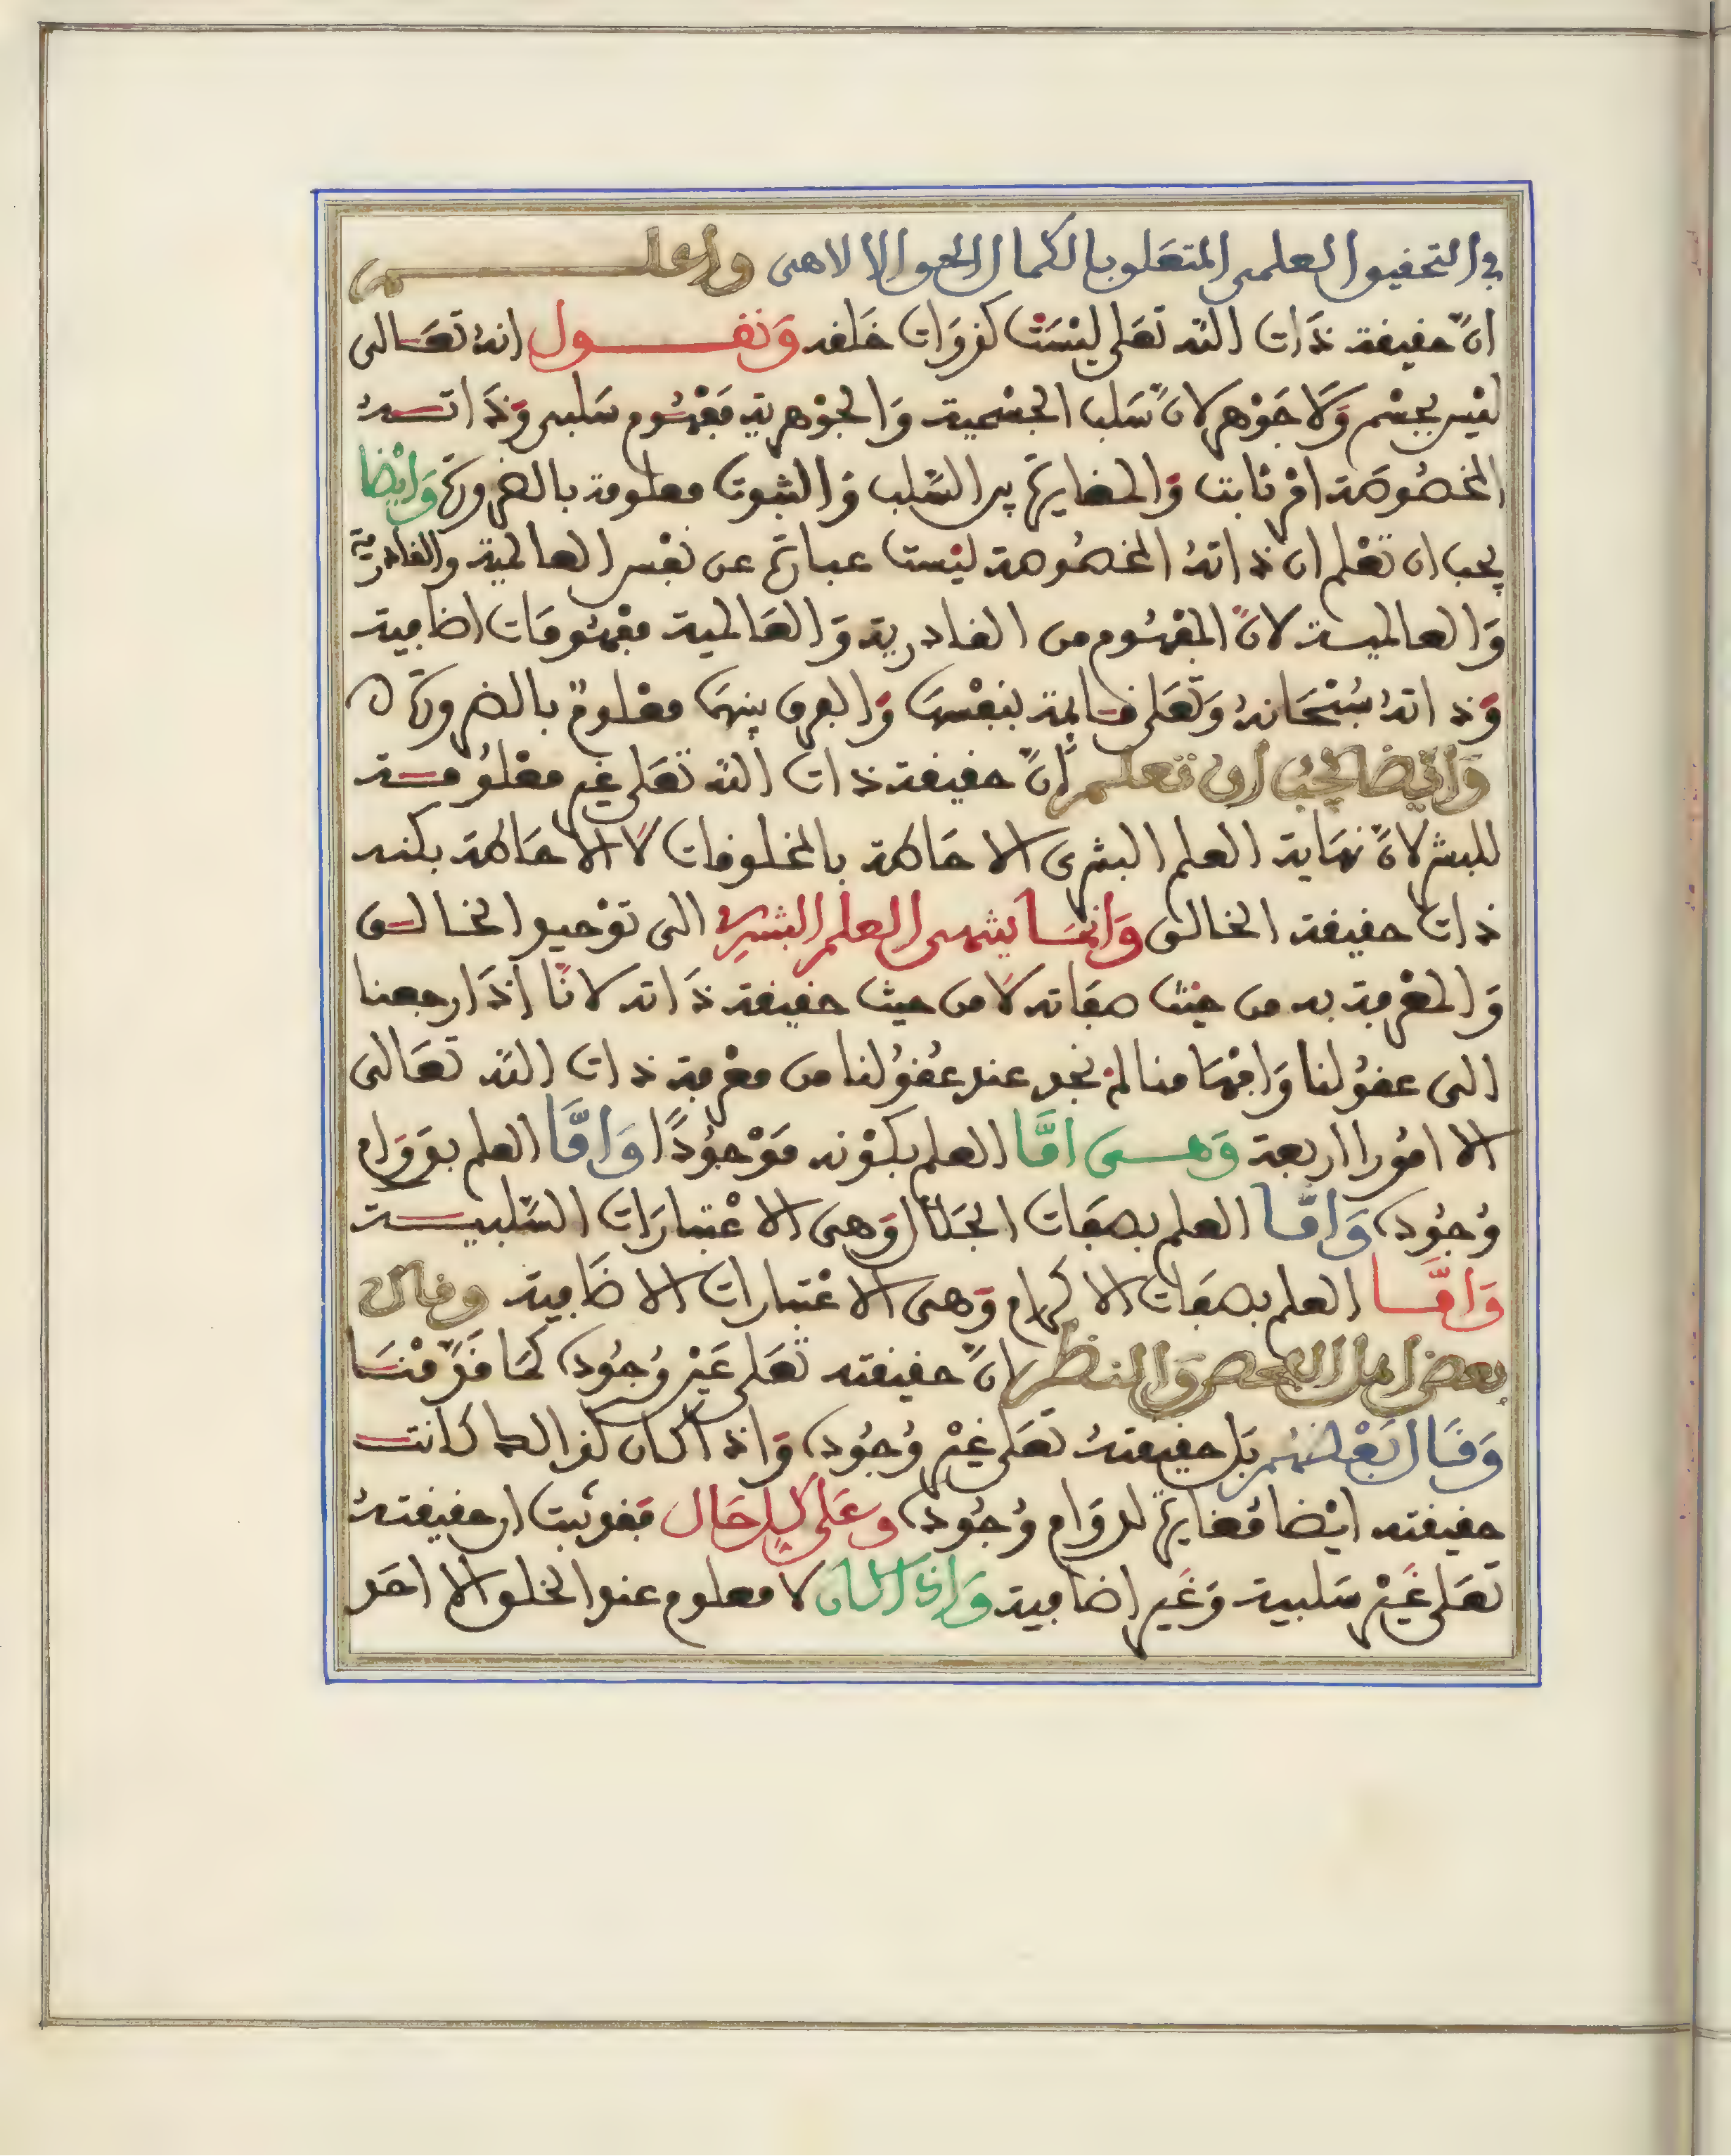 في التحقيق العلمى المتعلق بالكمال الحق الالاهى واعلم
انّ حقيقة ذَات الله تعَلى ليْسَتْ كذوَات خَلقه وَنقول انهُ تعَالى
ليْس بجسْم وَلا جَوْهر لانّ سَلب الجسْمية وَالجوْهرية مَفْهُوم سَلبى وَذَاتهُ
المخصُوصَة امْر ثابت وَالمغايرة بين السّلب وَالثبوت معلومة بالضرورة وَايْضا
يجب ان تعْلم ان ذاتهُ المخصُوصة ليْست عبارة عن نفْس العالمية والقادرية
وَالعالمية لانّ المفْهُوم من القادرية وَالعَالمية مفْهُومَات اضافية
وَذاتهُ سُبْحَانهُ وَتعَلى قايمة بنفْسهَا وَالفرق بينهمَا معْلومٌ بالضرورة ه
وَايْضا يجبُ أن تعلم أنّ حقيقة ذات الله تعَلى غير معْلُومة
للبشر لانّ نهَاية العلم البشرى الاحَاطة بالمخلوقات لا الاحَاطة بكنه
ذات حقيقة الخالق وَانمَا ينتهى العلم البشرِي الى توْحيد الخالق
وَالمعْرفة به من حيْث صفاته لا من حيث حقيقة ذَاته لانّا اذَا رجعنا
الى عقوُلنا وَافهَامنا لمْ نجد عند عُقوُلنا من معْرفة ذات الله تعَالى
الا امُورا اربعة وَهى امَّا العلم بكوْنه مَوْجوُدًا وَامَّا العلم بدوَام
وُجوُده وَامَّا العلم بصفَات الجَلال وَهى الاعْتبارَات السّلبية
وَامَّا العلم بصفَات الاكرام وَهى الاعْتبارات الاضَافية وقال
بعض اهل الفحص وَالنظر انّ حقيقته تعَلى عَيْن وُجوُده كمَا قدّمْنَا
وَقَال بَعْضهُم بَل حقيقتهُ تعَلى غيْر وُجوُده وَاذا كان كذالك كانت
حقيقته ايْضا مُغايرة لدوَام وُجوُده وعَلى كل حَال فقد ثبت ان حقيقتهُ
تعَلى غَيْر سَلبية وَغَير إضافية وَاذا كان لا معلوم عند الخلق الا احَد